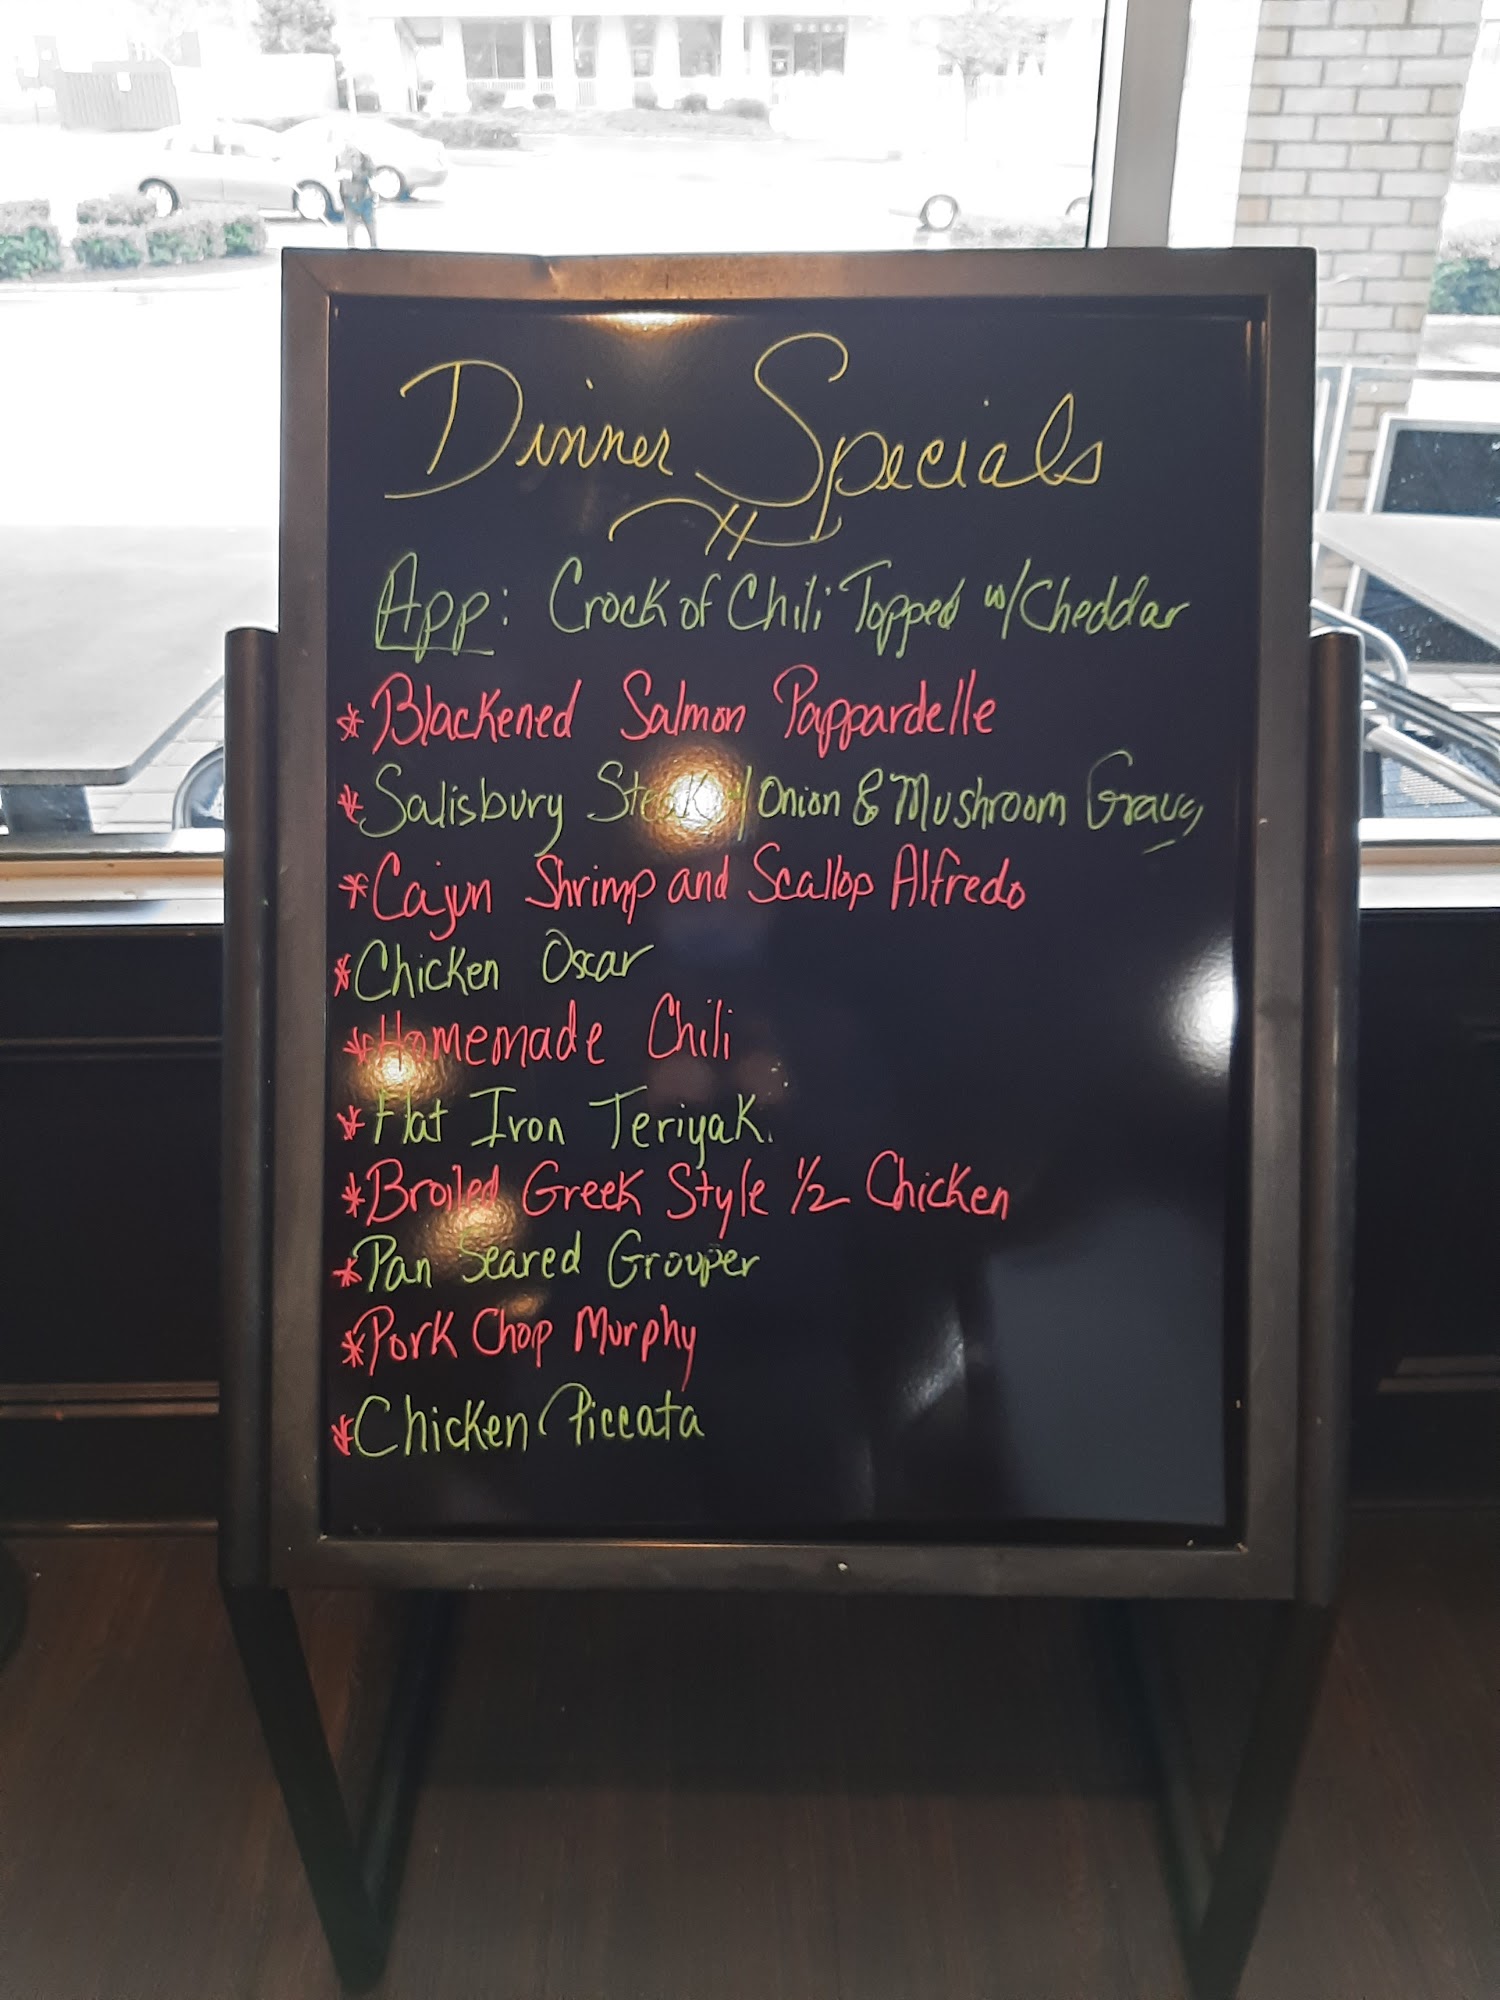 Dinner Specials
App: Crock of Chili Topped w/ Cheddar
* Blackened Salmon Pappardelle
* Salisbury Steak w/ Onion & Mushroom Gravy
* Cajun Shrimp and Scallop Alfredo
* Chicken Oscar
* Homemade Chili
* Flat Iron Teriyaki
* Broiled Greek Style 1/2 Chicken
* Pan Seared Grouper
* Pork Chop Murphy
* Chicken Piccata